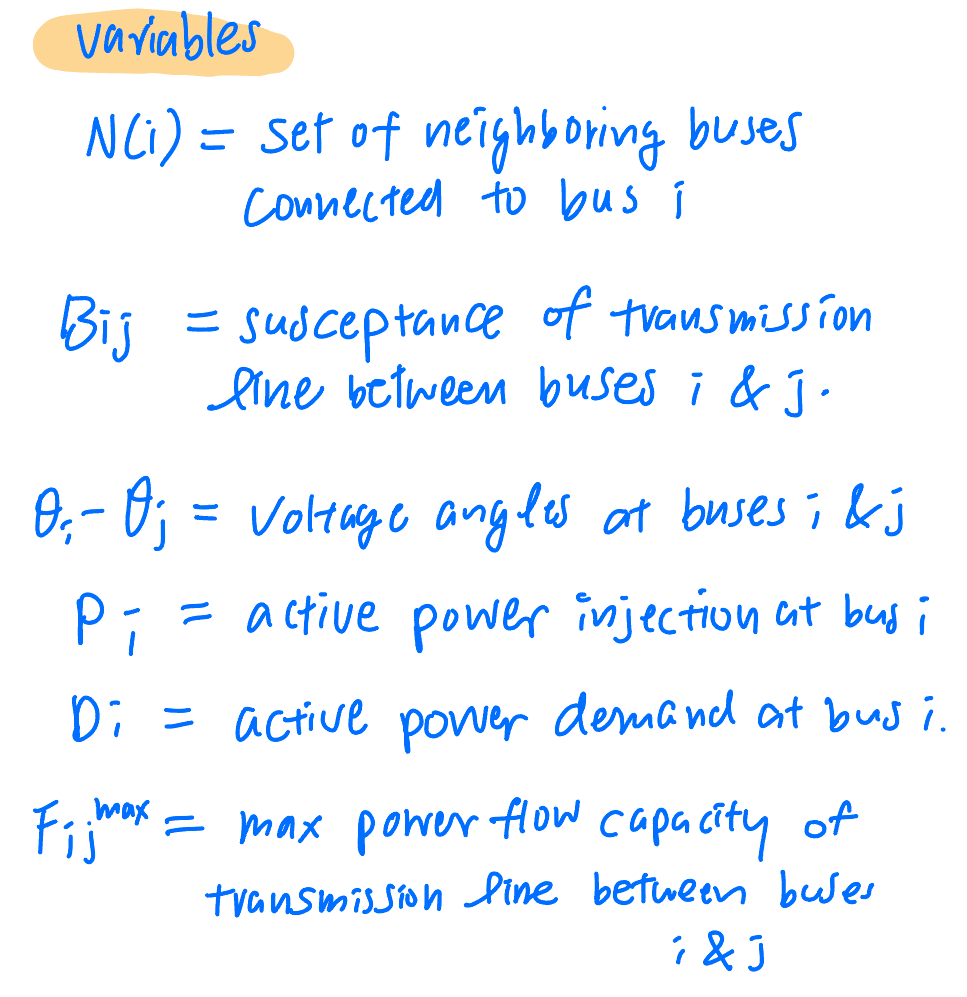 variables
N(i) = set of neighboring buses
connected to bus i
Bij = susceptance of transmission
line between buses i & j.
θi - θj = voltage angles at buses i & j
Pi = active power injection at bus i
Di = active power demand at bus i.
Fij^max = max power flow capacity of
transmission line between buses
i & j